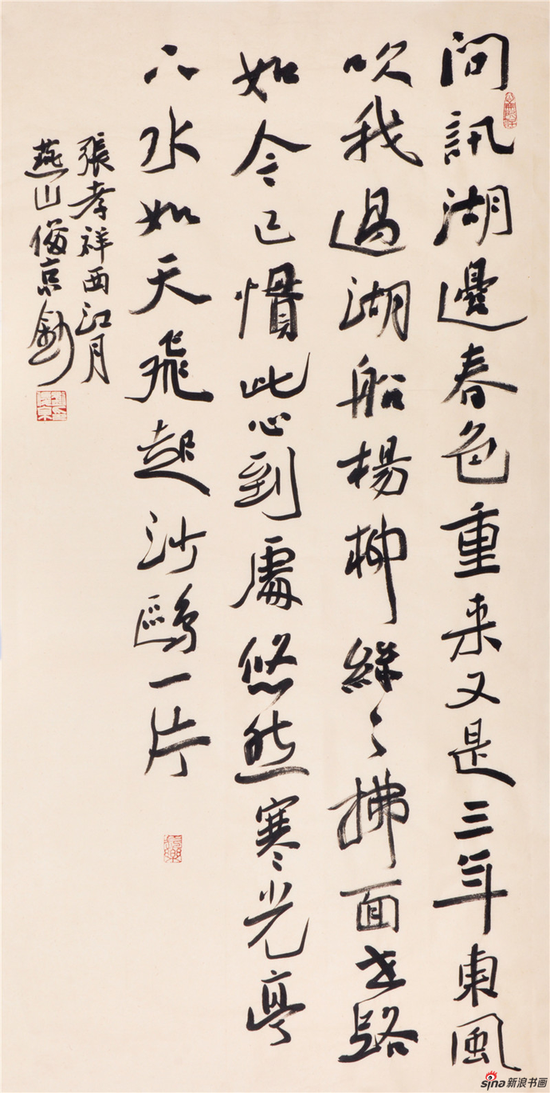 問訊湖邊春色重来又是三年東風
吹我過湖船楊柳絲〻拂面世路
如今已慣此心到處悠然寒光亭
下水如天飛起沙鷗一片
張孝祥西江月
燕山俊京
sina新浪书画